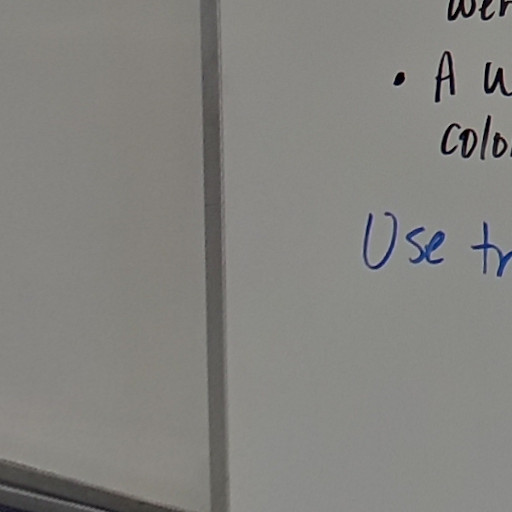 wer
• A w
colo
Use tr